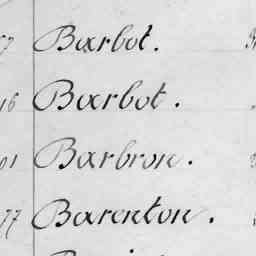 Barbot.
16 Barbot.
Barbron.
77 Barenton.